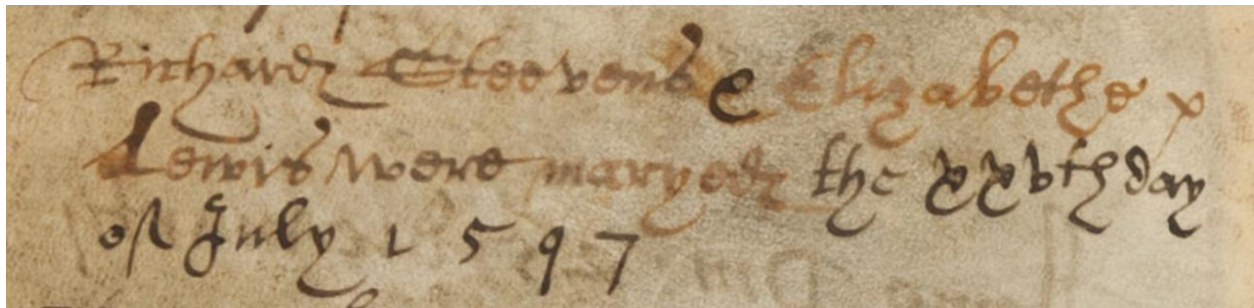 Richard Steevens & Elizabethe x
Lewis were maryed the xxvth day
of July 1597